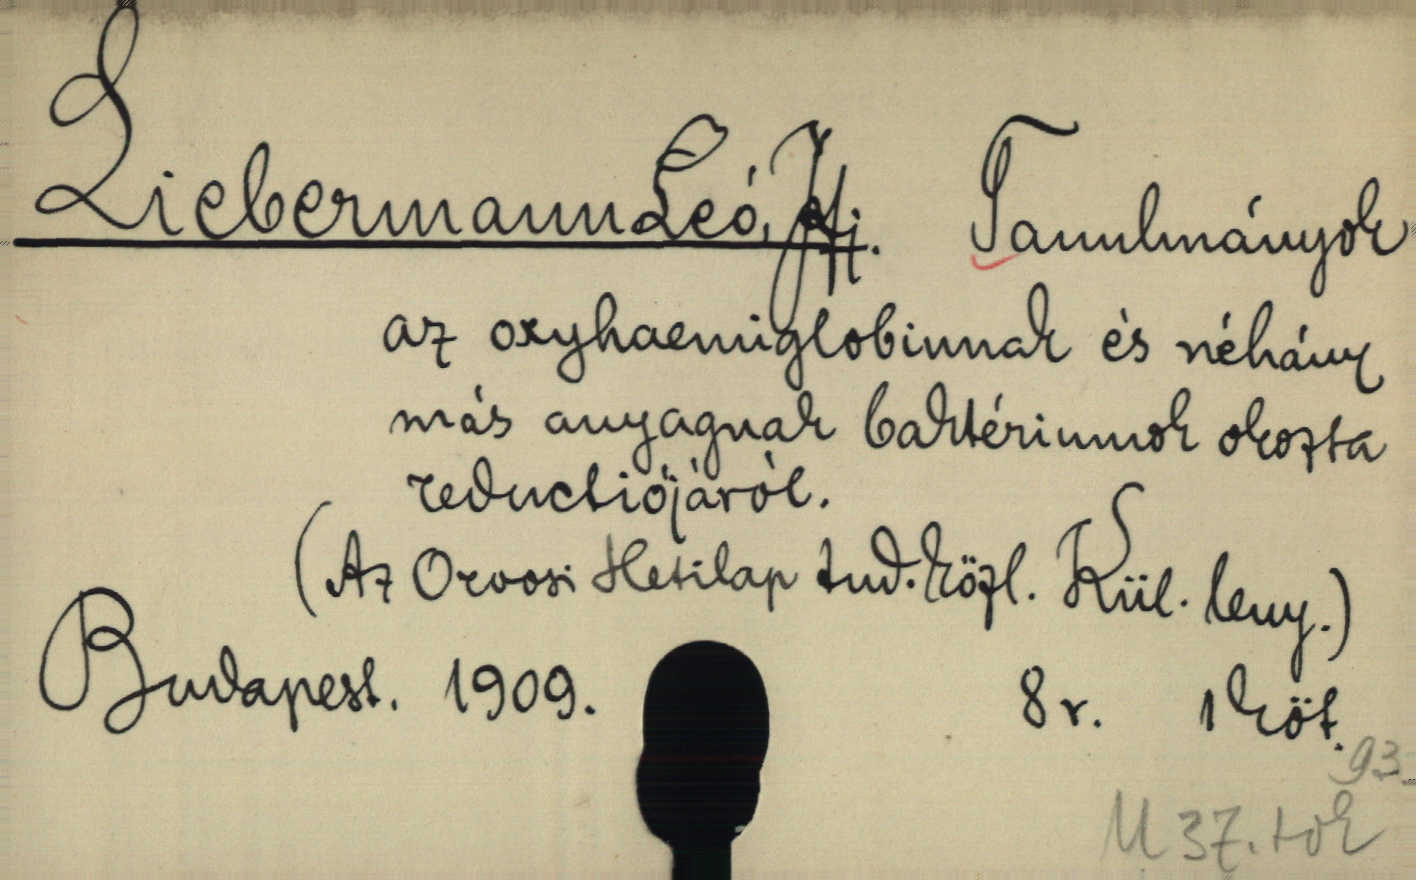 Liebermann Leó, Ifj. Tanulmányok
az oxyhaemiglobinnak és néhány
más anyagnak baktériumok okozta
reductiójáról.
(Az Orvosi Hetilap tud. közl. Kül. leny.)
Budapest. 1909. 8 r. 1 köt.
93
M 37. tok